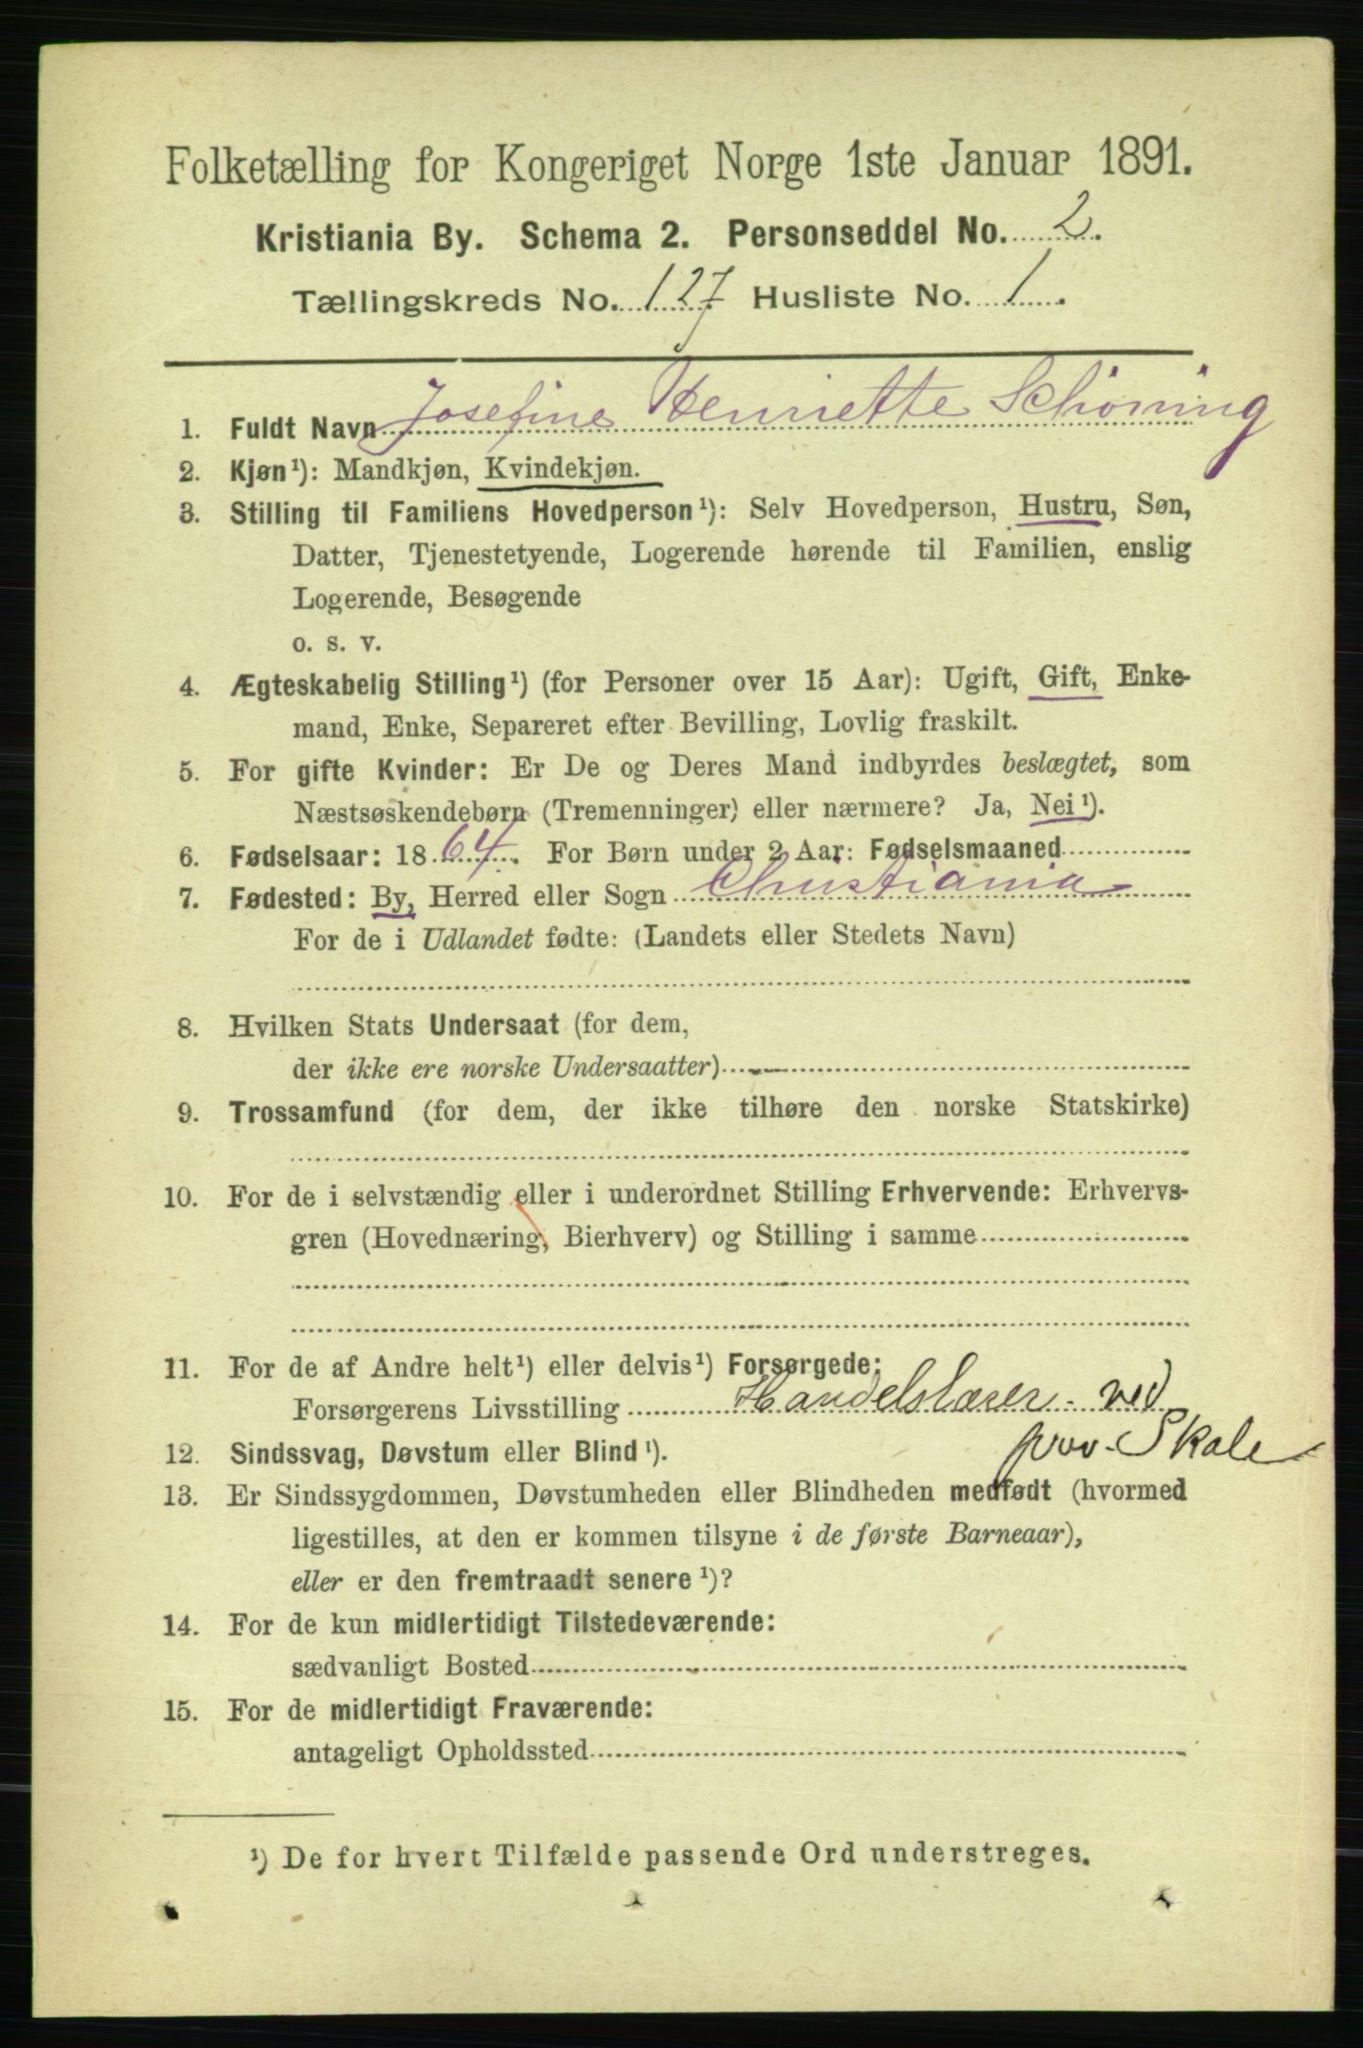 Folketælling for Kongeriget Norge 1ste Januar 1891.
Kristiania By. Schema 2. Personseddel No. 2.
Tællingskreds No. 127 Husliste No. 1.
1. Fuldt Navn Josefine Henriette Schöning
2. Kjøn¹): Mandkjøn, Kvindekjøn.
3. Stilling til Familiens Hovedperson¹): Selv Hovedperson, Hustru, Søn,
Datter, Tjenestetyende, Logerende hørende til Familien, enslig
Logerende, Besøgende
o. s. v.
4. Ægteskabelig Stilling¹) (for Personer over 15 Aar): Ugift, Gift, Enke-
mand, Enke, Separeret efter Bevilling, Lovlig fraskilt.
5. For gifte Kvinder: Er De og Deres Mand indbyrdes beslægtet, som
Næstsøskendebørn (Tremenninger) eller nærmere? Ja, Nei¹).
6. Fødselsaar: 1864. For Børn under 2 Aar: Fødselsmaaned
7. Fødested: By, Herred eller Sogn Christiania
For de i Udlandet fødte: (Landets eller Stedets Navn)
8. Hvilken Stats Undersaat (for dem,
der ikke ere norske Undersaatter)
9. Trossamfund (for dem, der ikke tilhøre den norske Statskirke)
10. For de i selvstændig eller i underordnet Stilling Erhvervende: Erhvervs-
gren (Hovednæring, Bierhverv) og Stilling i samme
11. For de af Andre helt¹) eller delvis¹) Forsørgede:
Forsørgerens Livsstilling Handelslærer. ved
prov. Skole
12. Sindssvag, Døvstum eller Blind¹).
13. Er Sindssygdommen, Døvstumheden eller Blindheden medfødt (hvormed
ligestilles, at den er kommen tilsyne i de første Barneaar),
eller er den fremtraadt senere¹)?
14. For de kun midlertidigt Tilstedeværende:
sædvanligt Bosted
15. For de midlertidigt Fraværende:
antageligt Opholdssted
¹) De for hvert Tilfælde passende Ord understreges.